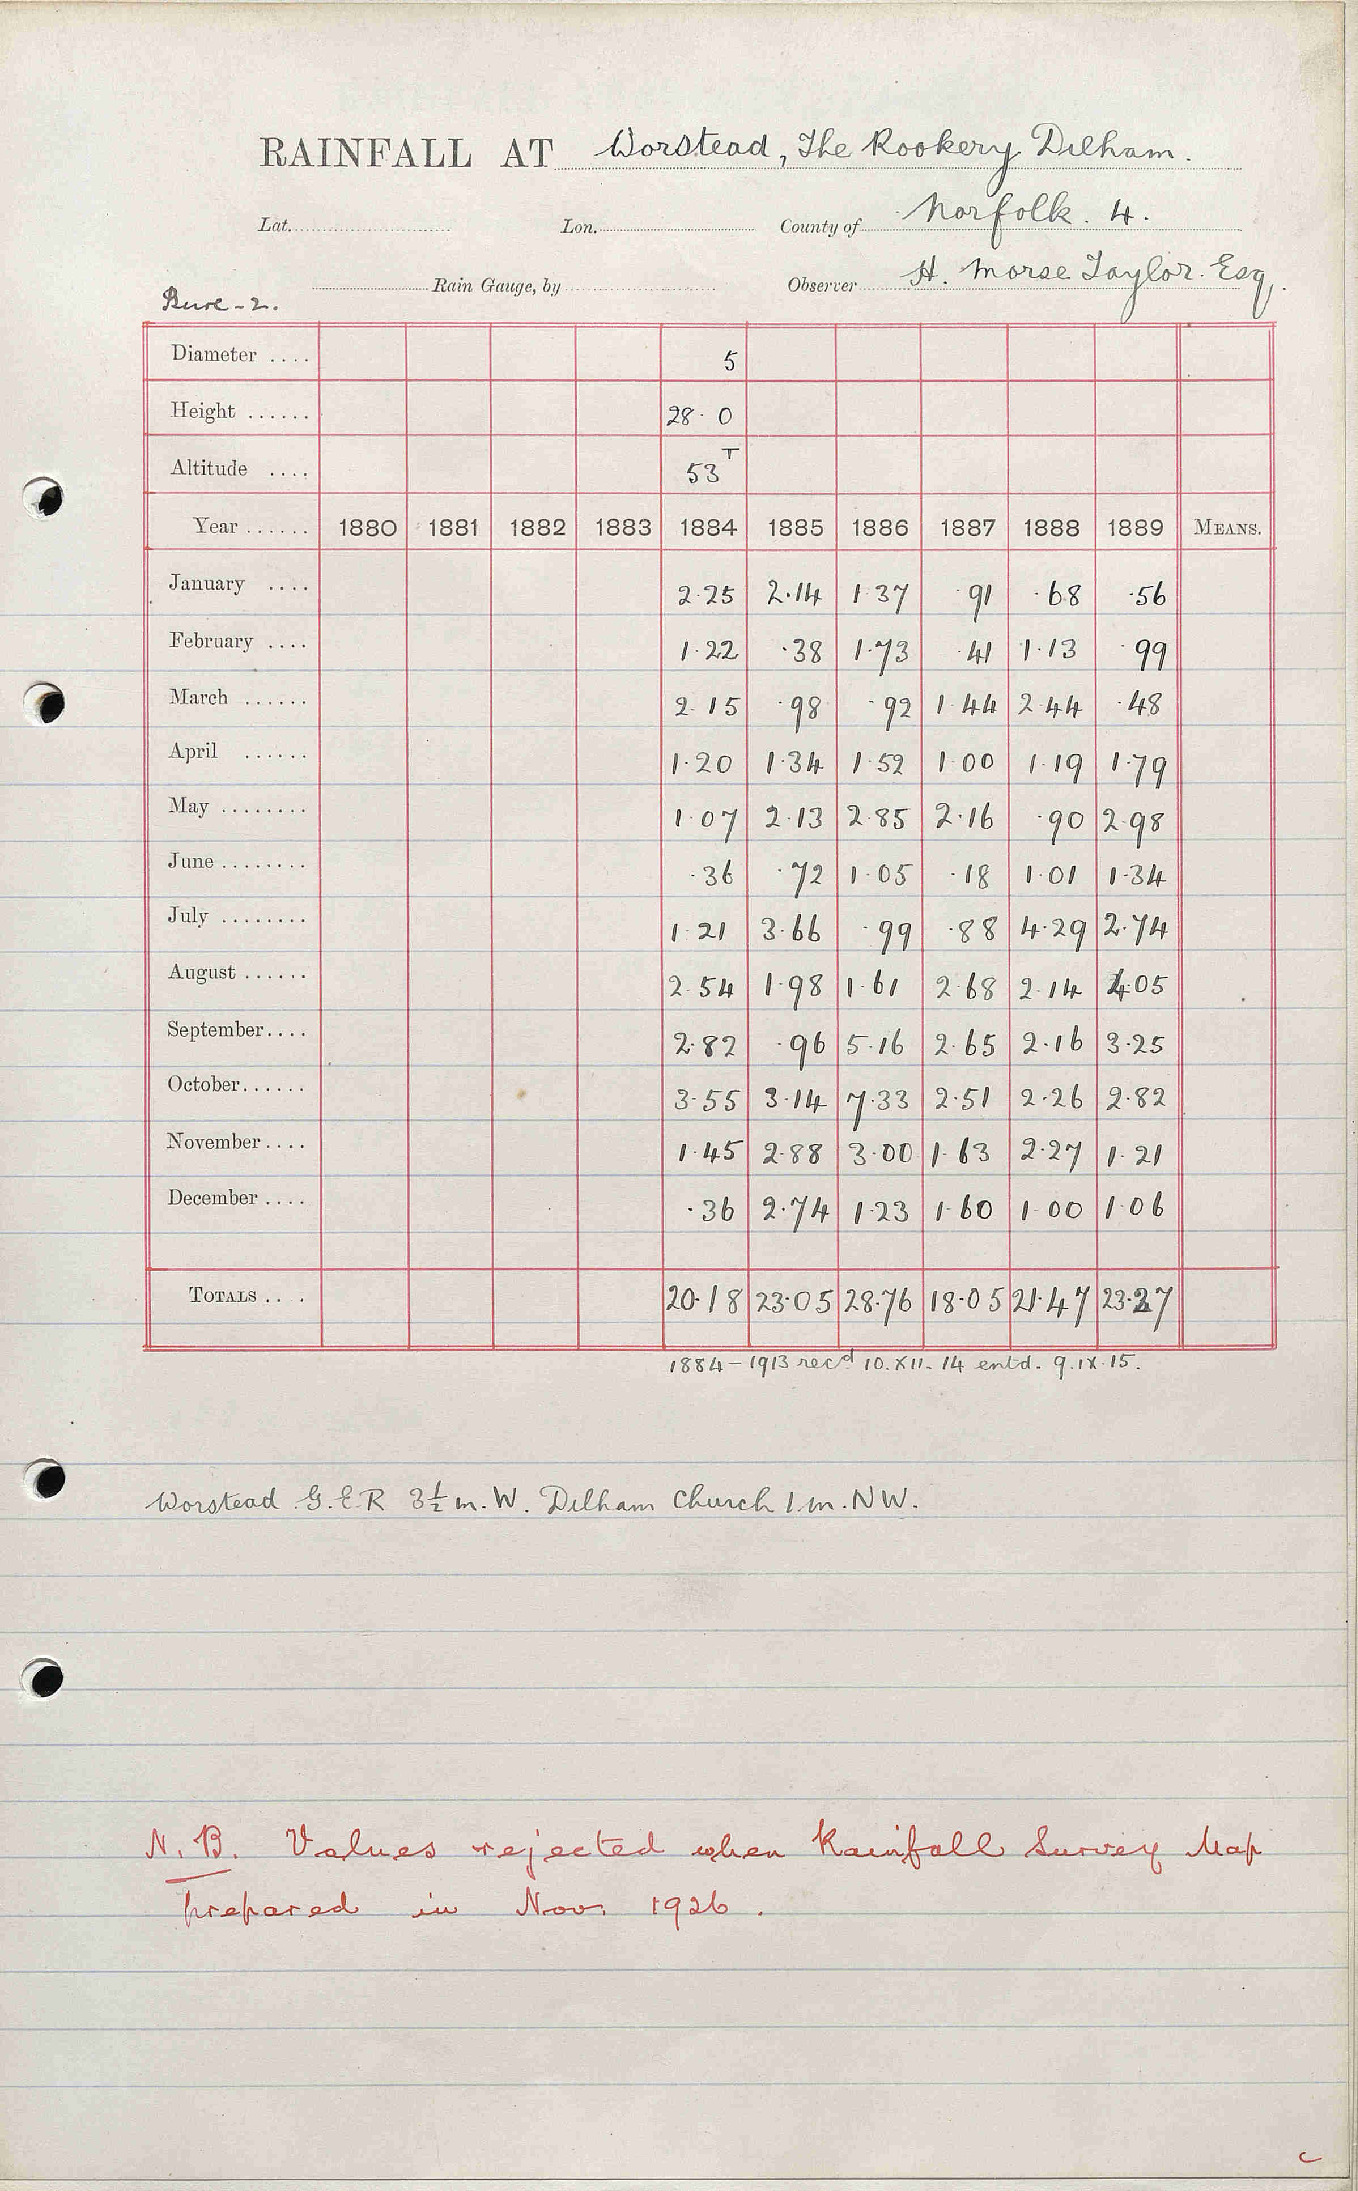 RAINFALL AT Worstead, The Rookery Dilham.
Lat. Lon. County of Norfolk. 4.
Rain Gauge, by Observer H. Morse Taylor. Esq.
Bure - 2.
Diameter .... 5
Height ...... 28. 0
Altitude .... 53 T
Year ...... 1880 1881 1882 1883 1884 1885 1886 1887 1888 1889 MEANS.
January .... 2.25 2.14 1.37 .91 .68 .56
February .... 1.22 .38 1.73 .41 1.13 .99
March ...... 2.15 .98 .92 1.44 2.44 .48
April ...... 1.20 1.34 1.52 1.00 1.19 1.79
May ........ 1.07 2.13 2.85 2.16 .90 2.98
June ........ .36 .72 1.05 .18 1.01 1.34
July ........ 1.21 3.66 .99 .88 4.29 2.74
August ...... 2.54 1.98 1.61 2.68 2.14 4.05
September.... 2.82 .96 5.16 2.65 2.16 3.25
October...... 3.55 3.14 7.33 2.51 2.26 2.82
November.... 1.45 2.88 3.00 1.63 2.27 1.21
December .... .36 2.74 1.23 1.60 1.00 1.06
TOTALS .. . 20.18 23.05 28.76 18.05 21.47 23.27
1884-1913 recd 10.XII.14 entd. 9.IX.15.
Worstead G.E.R 3½ m. W. Dilham Church 1 m. NW.
N.B. Values rejected when Rainfall Survey Map
prepared in Nov. 1926.
c